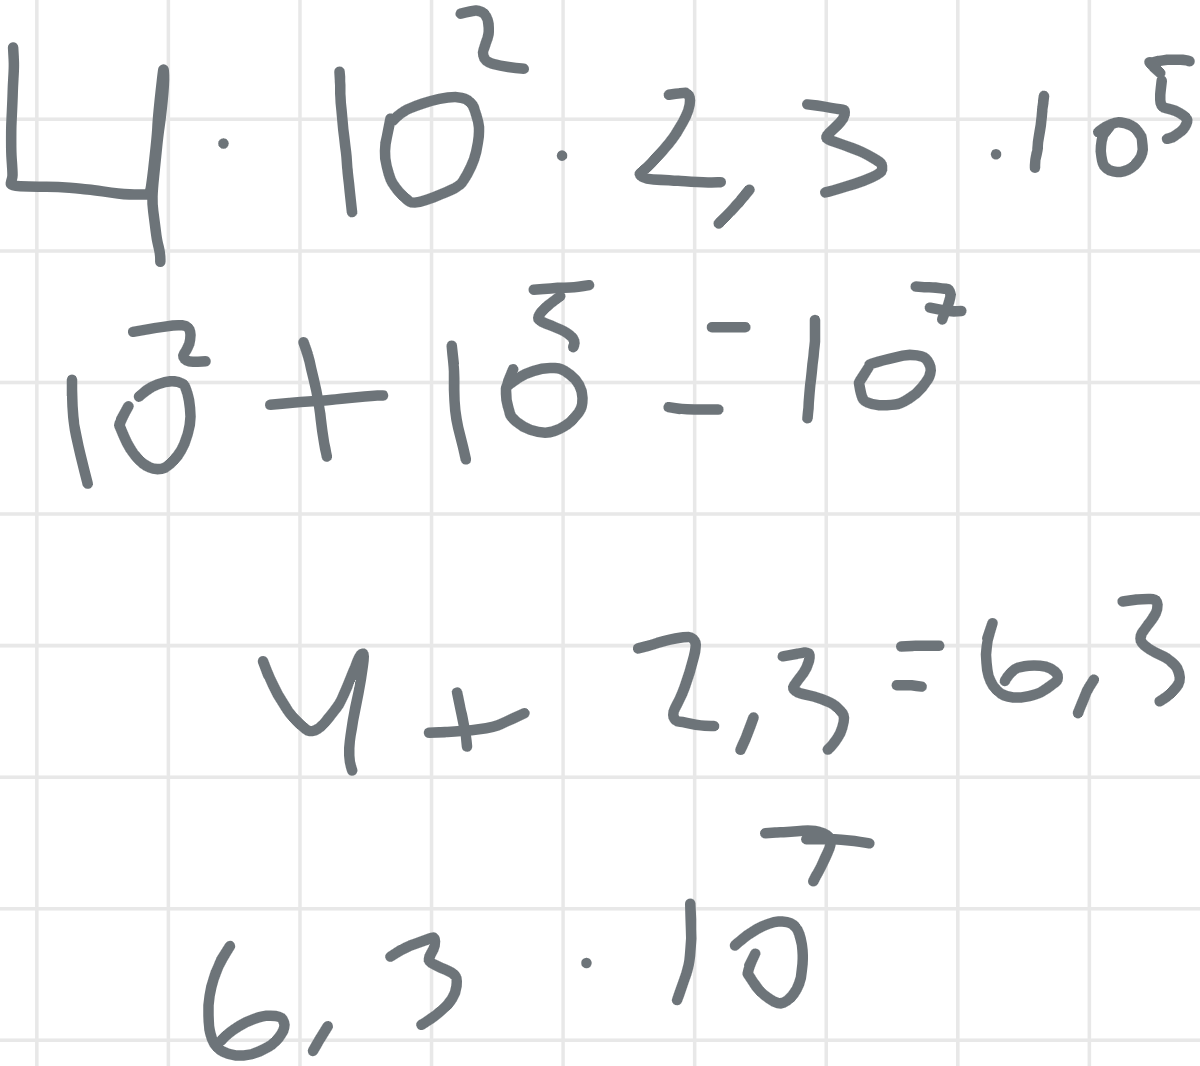 4 · 10² · 2,3 · 10⁵
10² + 10⁵ = 10⁷
4 + 2,3 = 6,3
6,3 · 10⁷